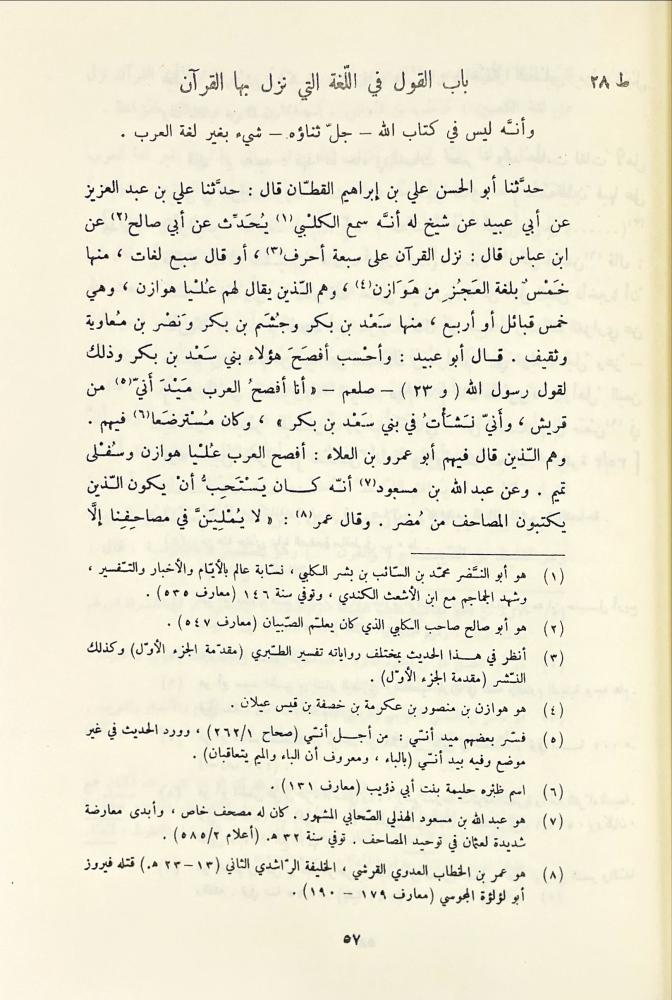 ط ٢٨ باب القول في اللّغة التي نزل بها القرآن
وأنّه ليس في كتاب الله – جلّ ثناؤه – شيء بغير لغة العرب .
حدّثنا أبو الحسن علي بن إبراهيم القطّان قال : حدّثنا علي بن عبد العزيز
عن أبي عبيد عن شيخ له أنّه سمع الكلْبي(١) يُحَدِّث عن أبي صالح(٢) عن
ابن عباس قال : نزل القرآن على سبعة أحرف(٣) ، أو قال سبع لغات ، منها
خَمْسٌ بلغة العَجُزِ من هَوَازن(٤) ، وهم الّذين يقال لهم عُلْيا هوازن ، وهي
خمس قبائل أو أربع ، منها سَعْد بن بكر وجُشَم بن بكر ونَصْر بن مُعاوية
وثقيف . قال أبو عبيد : وأحْسب أفصَحَ هؤلاء بني سَعْد بن بكر وذلك
لقول رسول الله ( و ٢٣ ) – صلعم – « أنا أفصحُ العرب مَيْدَ أَنيّ(٥) من
قريش ، وأَنيّ نَشَأْتُ في بني سَعْد بن بكر » ، وكان مُسْترضَعا(٦) فيهم .
وهم الّذين قال فيهم أبو عمرو بن العلاء : أفصح العرب عُلْيا هوازن وسُفْلى
تميم . وعن عبد الله بن مسعود(٧) أنّه كان يَسْتَحِبُّ أنْ يكون الّذين
يكتبون المصاحف من مُضر . وقال عمر(٨) : « لا يُمْلِيَنَّ في مصاحِفِنا إلَّا
(١) هو أبو النّضر محمّد بن السّائب بن بشر الكلبي ، نسّابة عالم بالأيّام والأخبار والتّفسير ،
وشهد الجماجم مع ابن الأشعث الكندي ، وتوفي سنة ١٤٦ (معارف ٥٣٥) .
(٢) هو أبو صالح صاحب الكلبي الذي كان يعلّم الصّبيان (معارف ٥٤٧) .
(٣) أنظر في هذا الحديث بمختلف رواياته تفسير الطّبري (مقدّمة الجزء الأوّل) وكذلك
النّشر (مقدمة الجزء الأوّل) .
(٤) هو هوازن بن منصور بن عكرمة بن خصفة بن قيس عيلان .
(٥) فسّر بعضهم ميد أنّي : من أجل أنّي (صحاح ٢٦٢/١) ، وورد الحديث في غير
موضع وفيه بيد أنّي (بالباء ، ومعروف أن الباء والميم يتعاقبان) .
(٦) اسم ظئره حليمة بنت أبي ذؤيب (معارف ١٣١) .
(٧) هو عبد الله بن مسعود الهذلي الصّحابي المشهور . كان له مصحف خاص ، وأبدى معارضة
شديدة لعثمان في توحيد المصاحف . توفي سنة ٣٢ هـ. (أعلام ٥٨٥/٢) .
(٨) هو عمر بن الخطاب العدوي القرشي ، الخليفة الرّاشدي الثاني (١٣–٢٣ هـ.) قتله فيروز
أبو لؤلؤة المجوسي (معارف ١٧٩ – ١٩٠) .
٥٧